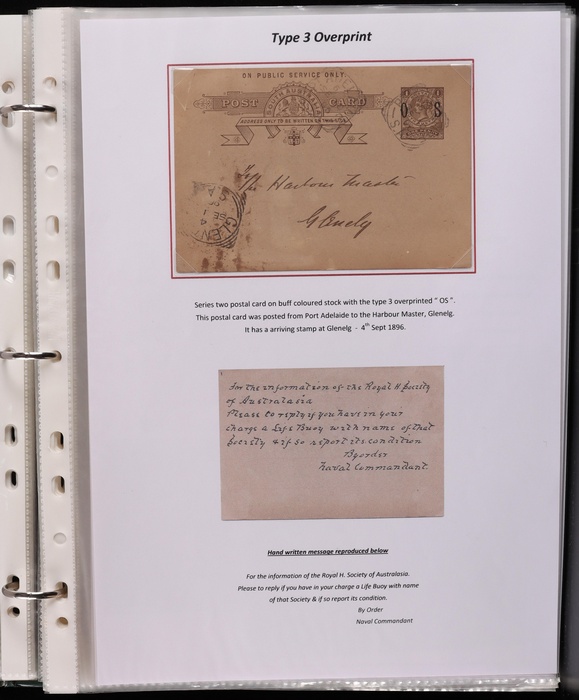 Type 3 Overprint
ON PUBLIC SERVICE ONLY.
POST CARD
SOUTH AUSTRALIA
ADDRESS ONLY TO BE WRITTEN ON THIS SIDE
O S
Harbour Master
Glenelg
GLEN
SE 4
Series two postal card on buff coloured stock with the type 3 overprinted " OS ".
This postal card was posted from Port Adelaide to the Harbour Master, Glenelg.
It has a arriving stamp at Glenelg - 4th Sept 1896.
For the information of the Royal H. Society
of Australasia
Please to reply if you have in your
charge a Life Buoy with name of that
Society & if so report its condition
By order
Naval Commandant.
Hand written message reproduced below
For the information of the Royal H. Society of Australasia.
Please to reply if you have in your charge a Life Buoy with name
of that Society & if so report its condition.
By Order
Naval Commandant